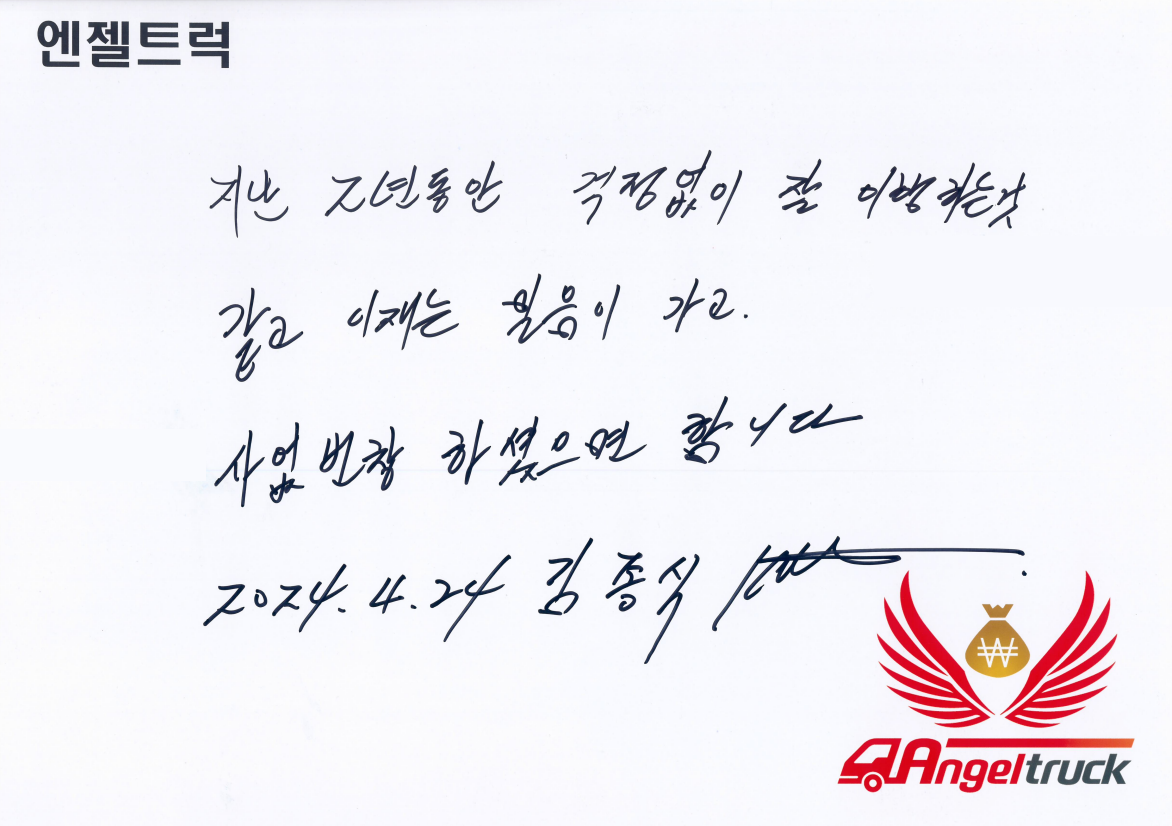 엔젤트럭
지난 2년동안 걱정없이 잘 이행하는것
같고 이재는 믿음이 가고.
사업번창 하셨으면 합니다
2024. 4. 24 김종식
₩
Angeltruck